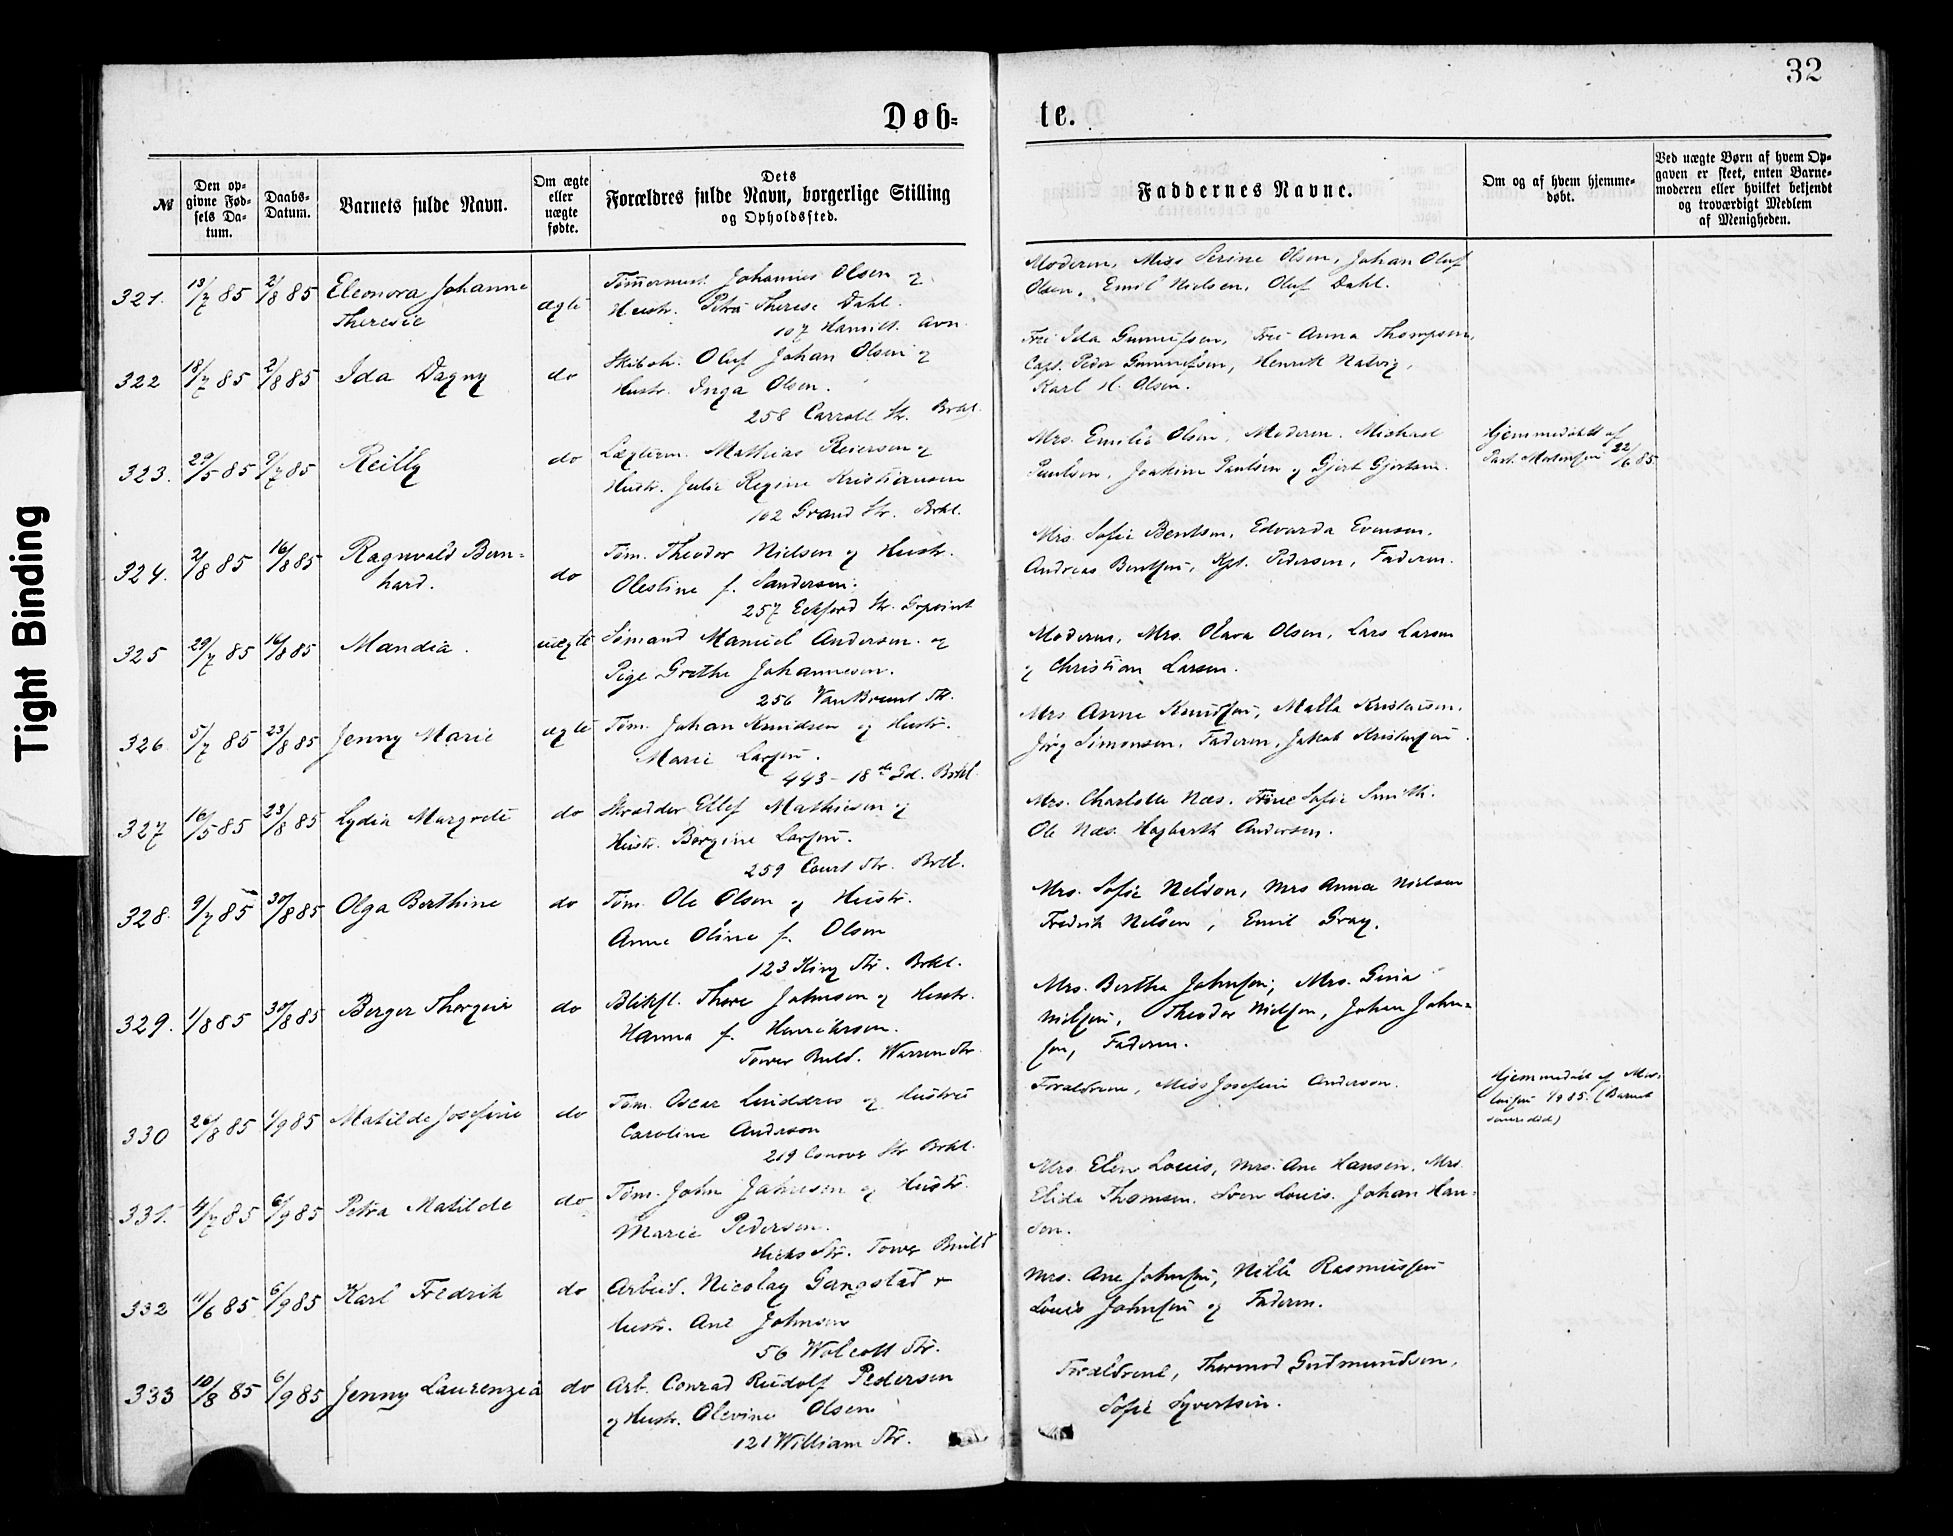 32
Døb=
te.
№
Den op-
givne Fød-
sels Da-
tum.
Daabs-
Datum.
Barnets fulde Navn.
Om ægte
eller
uægte
fødte.
Dets
Forældres fulde Navn, borgerlige Stilling
og Opholdssted.
Faddernes Navne.
Om og af hvem hjemme-
døbt.
Ved uægte Børn af hvem Op-
gaven er skeet, enten Barne-
moderen eller hvilket bekjendt
og troværdigt Medlem
af Menigheden.
321. 13/7 85 2/8 85 Eleonora Johanne
Theresie
ægte
Tømermest. Johannes Olsen og
Hustr. Petra Therese Dahl.
107 Hamilt. Avn.
Moderen, Miss Serine Olsen, Johan Oluf
Olsen, Emil Nielsen, Oluf Dahl.
322 18/7 85 2/8 85 Ida Dagny
do
Oluf Johan Olsen og
Hustr. Inga Olsen.
258 Carroll Str. Brkl.
Ida Gunnufsen, Anna Thompson,
Capt. Peder Gunnufsen, Henrik Natvig,
Karl H. Olsen.
323. 29/5 85 9/7 85 Reilly
do
Mathias Reiersen og
Hustr. Julie Regine Kristiansen
102 Grand Str. Brkl.
Mrs. Emilie Olsen, Moderen, Michael
Paulsen, Joakim Paulsen og Gjert Gjertsen.
Hjemmedøbt af
Past. Mortensen 22/6 85
324. 2/8 85 16/8 85 Ragnvald Bern-
hard.
do
Tøm. Theodor Nielsen og Hustr.
Olestine f. Sandersen.
257 Eckford Str. Grpoint
Mrs. Sofie Bentsen, Edvarda Evensen,
Andreas Bentsen, Kpt. Pedersen, Faderen.
325 29/7 85 16/8 85 Mandia.
uægte
Sømand Manuel Andersen og
Pige Grethe Johannesen.
256 VanBrunt Str.
Moderen, Mrs. Olava Olsen, Lars Larsen
og Christian Larsen.
326. 5/7 85 23/8 85 Jenny Marie
ægte
Tøm. Johan Knudsen og Hustr.
Marie Larsen.
443 - 18de Sd. Brkl.
Mrs Anne Knudsen, Malla Kristensen,
Jørg Simonsen, Faderen, Jakob Kristensen.
327 16/5 85 23/8 85 Lydia Margrete
do
Skrædder Ellef Mathiesen og
Hustr. Bergine Larsen.
259 Court Str. Brkl.
Mrs. Charlotte Næs. Sofie Smith.
Ole Næs. Hagbarth Andersen.
328. 9/7 85 30/8 85 Olga Berthine
do
Tøm. Ole Olsen og Hustr.
Anne Oline f. Olsen
123 King Str. Brkl.
Mrs. Sofie Nelson, Mrs Anna Nielsen
Fredrik Nelson, Emil Gray.
329. 1/8 85 30/8 85 Berger Thorgeir
do
Bliksl. Thore Johnsen og Hustr.
Hanna f. Henriksen.
Tower Buld. Warren Str.
Mrs. Berthe Johnsen, Mrs. Gina
Nielsen, Theodor Nielsen, Johan John-
sen, Faderen.
330 26/8 85 1/9 85 Matilde Josefine
do
Tøm. Oscar Linddros og Hustru
Caroline Anderson
219 Conover Str Brkl.
Forældrene, Miss Josefine Anderson.
Hjemmedøbt af Mor-
tensen 1/9 85. (Barnet
senere død)
331. 4/7 85 6/9 85 Petra Matilde
do
Tøm. John Johnsen og Hustr.
Marie Pedersen.
Hicks Str. Tower Build
Mrs. Elen Louis, Mrs. Ane Hansen, Mrs.
Elida Thomsen. Sven Louis. Johan Han-
sen.
332 11/6 85 6/9 85 Karl Fredrik
do
Arbeid. Nicolay Gangstad &
Hustr. Ane Johnsen
56 Wolcott Str.
Mrs. Ane Johnsen, Nille Rasmussen
Louis Johnsen og Faderen.
333 10/8 85 6/9 85 Jenny Laurenzea
do
Arb. Conrad Rudolf Pedersen
og Hustr. Olevine Olsen
121 William Str.
Forældrene, Thormod Gudmundsen,
Sofie Syvertsen.
Tight Binding